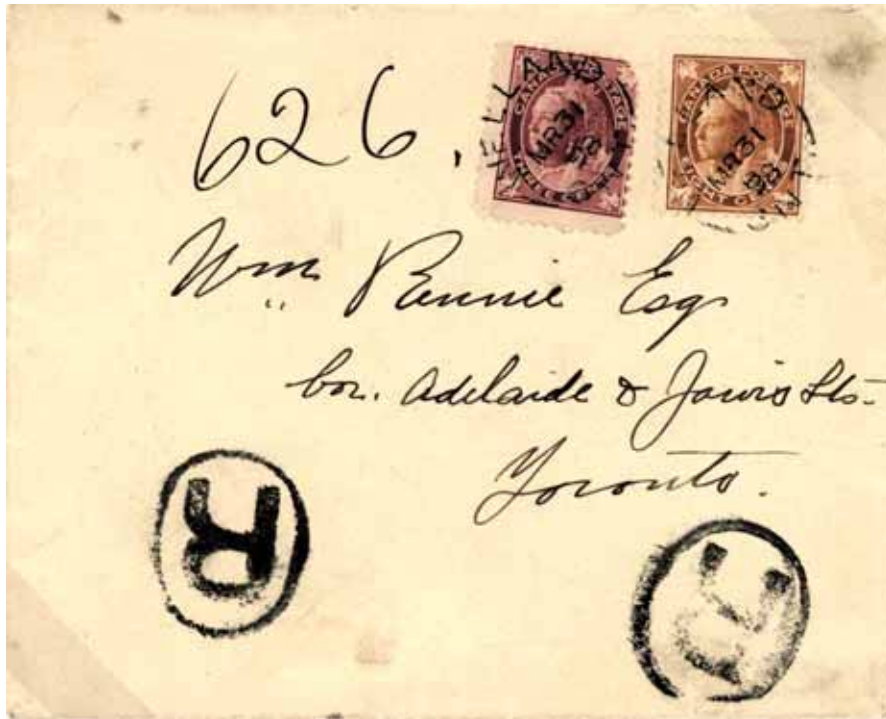 626.
WELLAND
MR 31
98
CANADA POSTAGE
AND
MR 31
98
ONT
CANADA POSTAGE
EIGHT CENTS
Wm Rennie Esq
Cor. Adelaide & Jarvis Sts.
Toronto.
R
R